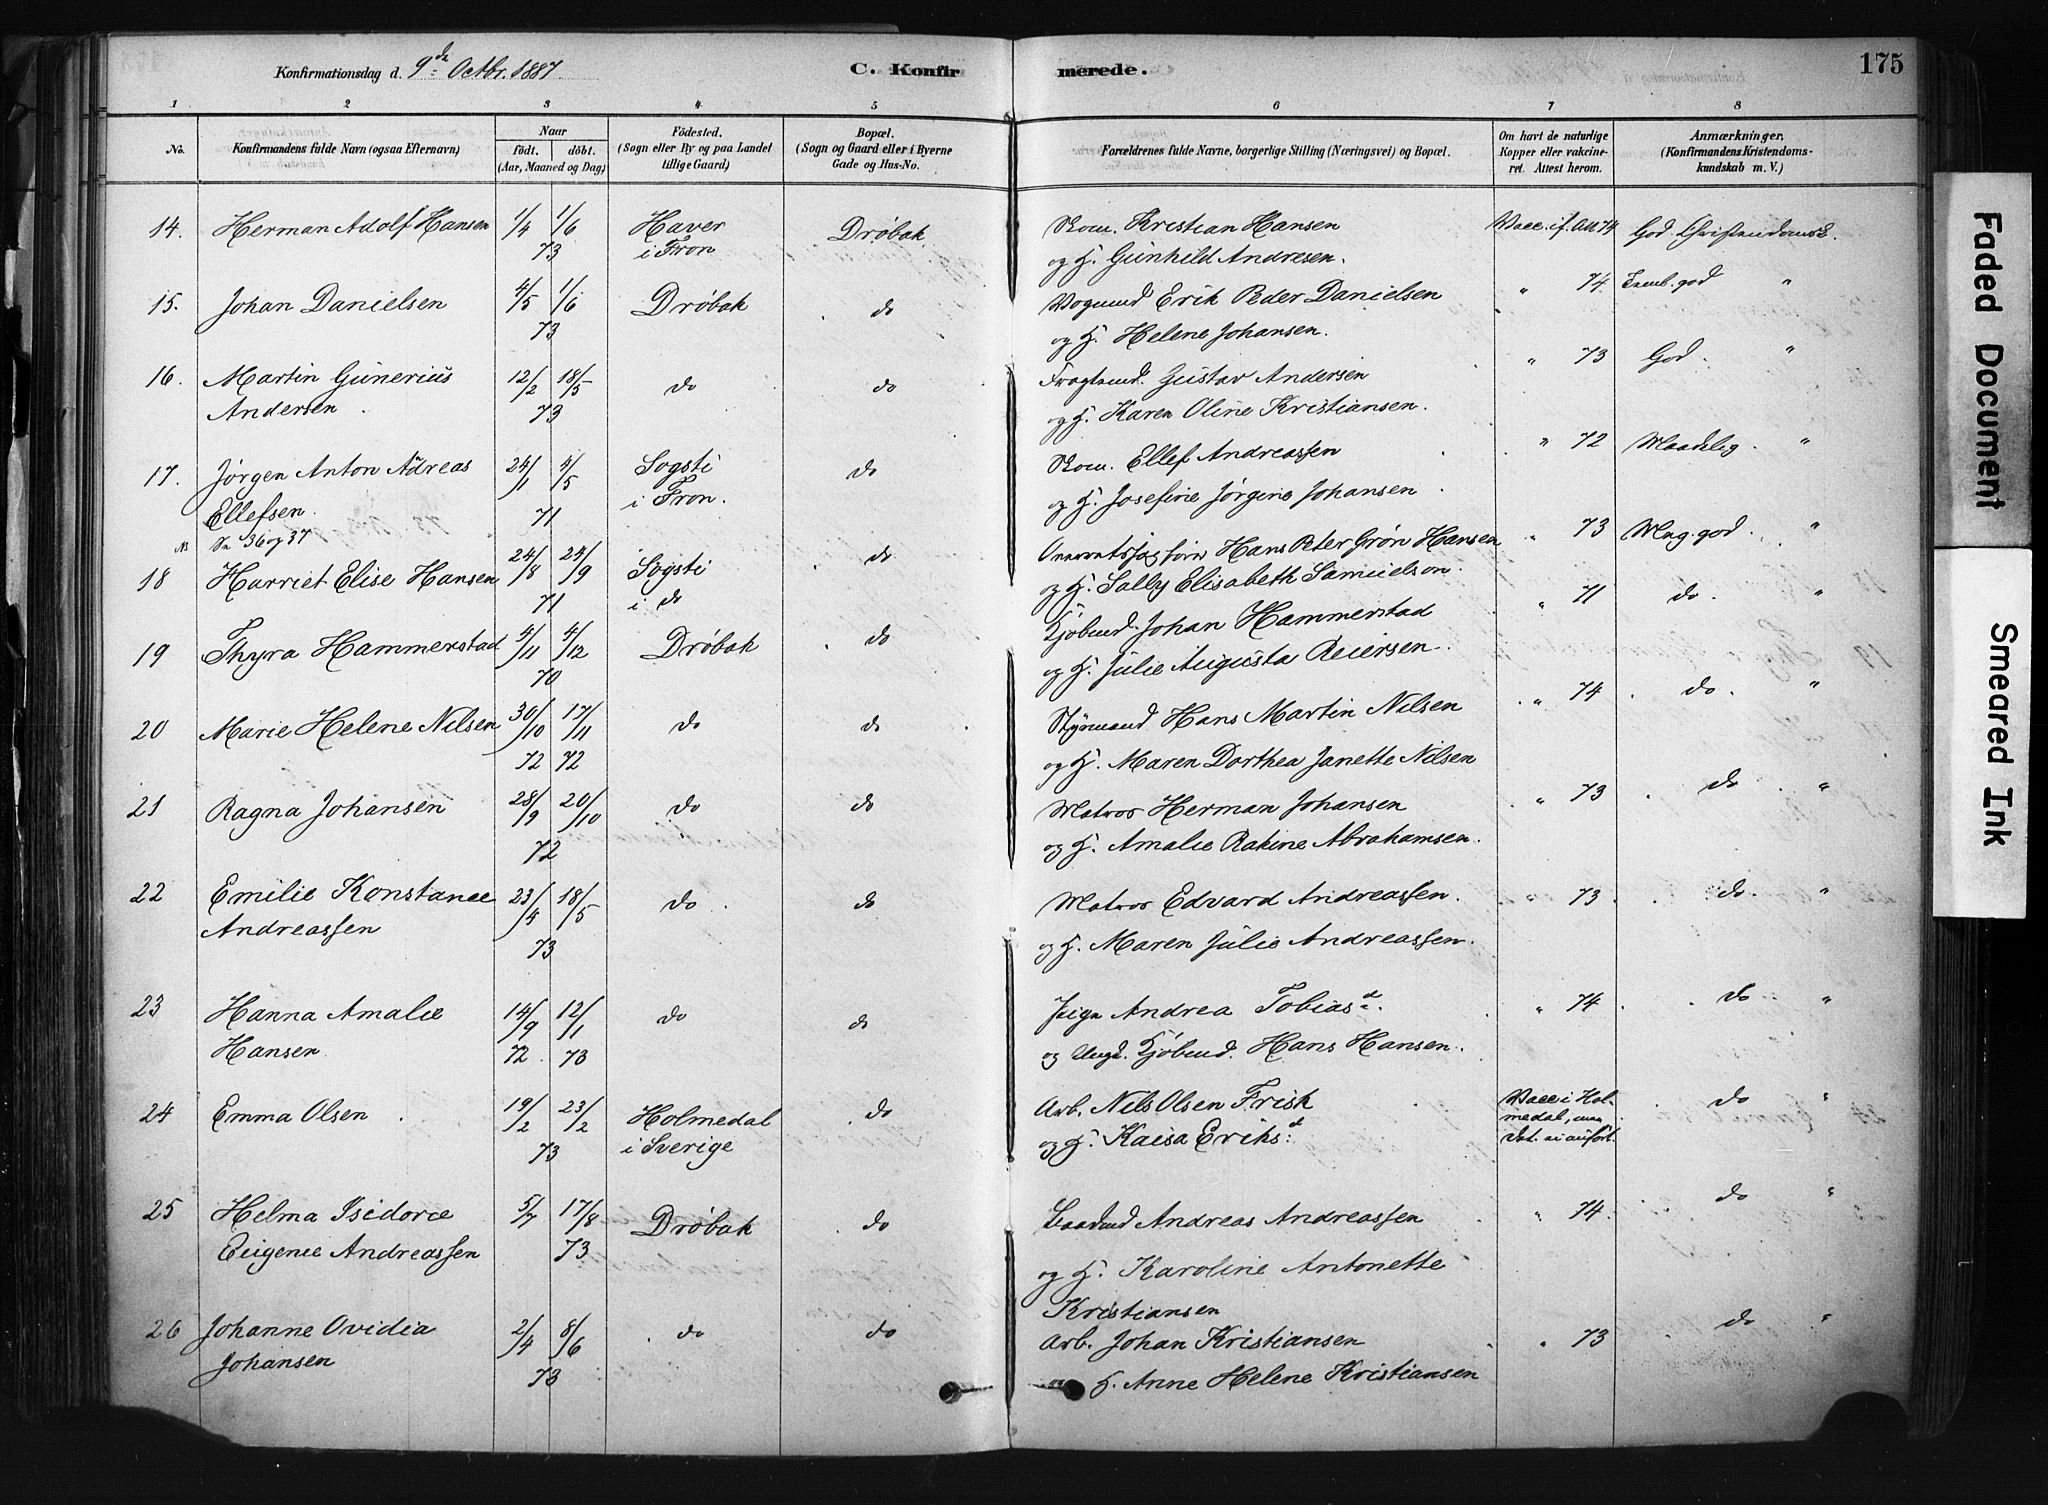 Konfirmationsdag d. 9de Octbr. 1887.
C. Konfirmerede.
175
1 2 3 4 5 6 7 8
No.
Konfirmandens fulde Navn (ogsaa Efternavn)
Naar
født. døbt.
(Aar, Maaned og Dag)
Födested.
(Sogn eller By og paa Landet
tillige Gaard)
Bopæl.
(Sogn og Gaard eller i Byerne
Gade og Hus-No.
Forældrenes fulde Navne, borgerlige Stilling (Næringsvei) og Bopæl.
Om havt de naturlige
Kopper eller vakcine-
ret. Attest herom.
Anmærkninger.
(Konfirmandens Kristendoms-
kundskab m. V.)
14. Herman Adolf Hansen 1/4 1/6 Haver Drøbak Skom. Kristian Hansen Vacc. if. Att 74 God Christendomsk.
73 i Fron og H. Gunhild Andresen.
15. Johan Danielsen 4/5 1/6 Drøbak do Vognmd Erik Peder Danielsen " 74 Temb. god "
73 og H. Helene Johansen.
16. Martin Gunerius 12/2 18/5 do do Fragtemd. Gustav Andersen " 73 God. "
Andersen 73 og H. Karen Oline Kristiansen.
17. Jørgen Anton Adreas 24/1 4/5 Sogsti do Skom. Ellef Andreassen " 72 Maadelig. "
Ellefsen. 71 i Fron. og H. Josefine Jørgine Johansen
Se 36 og 37
18 Harriet Elise Hansen 24/8 24/9 Sogsti do Hans Peter Grøn Hansen " 73 Mug. god. "
71 i do og H. Sally Elisabeth Samuelson.
19 Thyra Hammerstad 4/11 4/12 Drøbak do Kjøbmd. Johan Hammerstad " 71 do. "
70 og H. Julie Augusta Reiersen
20 Marie Helene Nilsen 30/10 17/11 do do Styrmand Hans Martin Nilsen " 74 do. "
72 72 og H. Maren Dorthea Janette Nilsen
21 Ragna Johansen 28/9 20/10 do do Matros Herman Johansen " 73 do "
72 og H. Amalie Rakine Abrahamsen.
22 Emilie Konstance 23/4 18/5 do do Matros Edvard Andreassen. " 73 do. "
Andreassen 73 og H. Maren Julie Andreassen.
23 Hanna Amalie 14/9 12/1 do do Pige Andrea Tobiasd. " 74 do "
Hansen. 72. 73 og Ungk. Kjøbmd. Hans Hansen.
24 Emma Olsen 19/2 23/2 Holmedal do Arb. Nils Olsen Frisk Vacc i Hol- do "
73 i Sverige og H. Kaisa Eriksd medal, men
Dat. ei anført.
25 Helma Isidorie 5/7 17/8 Drøbak do Andreas Andreassen " 74. do "
Eugenie Andreassen 73 og H. Karoline Antonette
Kristiansen
26 Johanne Ovidia 2/4 8/6 do do Arb. Johan Kristiansen " 73 do "
Johansen 73 og H. Anne Helene Kristiansen
Faded Document
Smeared Ink